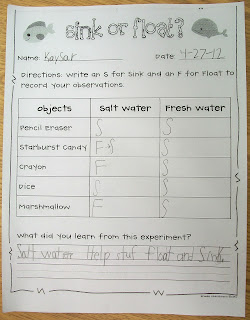 Sink or Float?
Name: Kaysar Date: 4-27-12
Directions: Write an S for Sink and an F for Float to
record your observations.
Objects Salt Water Fresh Water
Pencil Eraser S S
Starburst Candy F-S S
Crayon F S
Dice S S
Marshmallow F F
What did you learn from this experiment?
Salt water Help stuf float and Sink